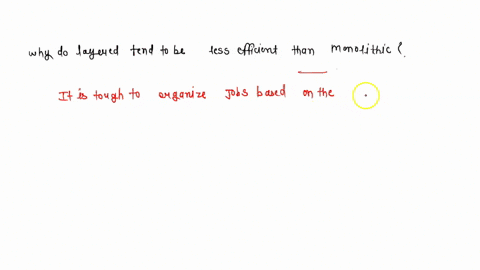 why do layered tend to be less efficient than monolithic ?.
It is tough to organize Jobs based on the